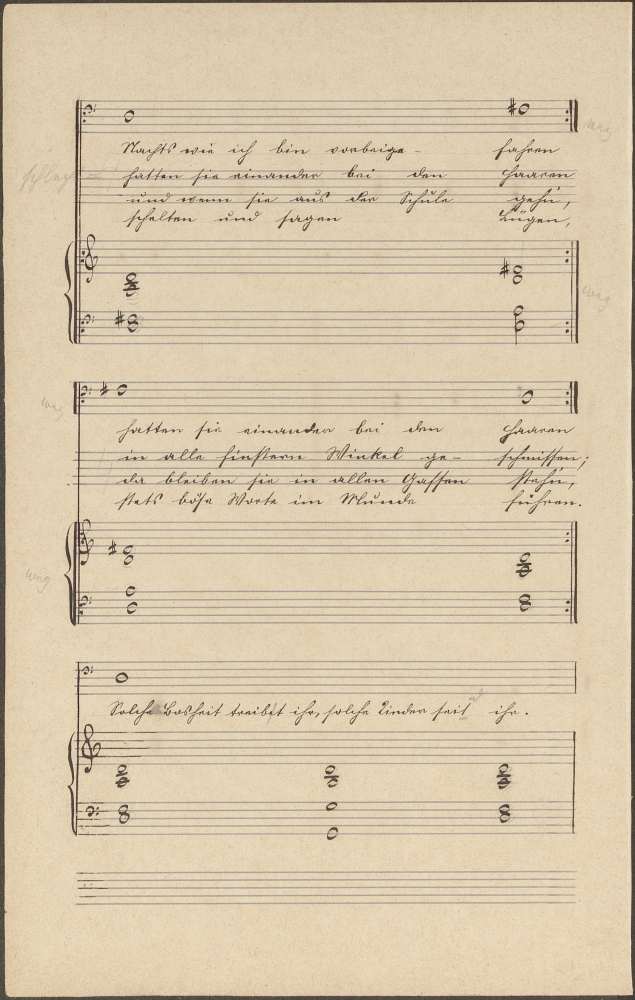 Nachts wie ich bin vorbeige- fahren
weg
hatten sie einander bei den Haaren
und wenn sie aus der Schule gehn,
schelten und sagen Lügen,
weg
weg
hatten sie einander bei den Haaren
in alle finstern Winkel ge- schmissen;
da bleiben sie in allen Gassen stehn,
stets böse Worte im Munde führen.
weg
Solche Bosheit treibet ihr, solche Kinder seit ihr.
d